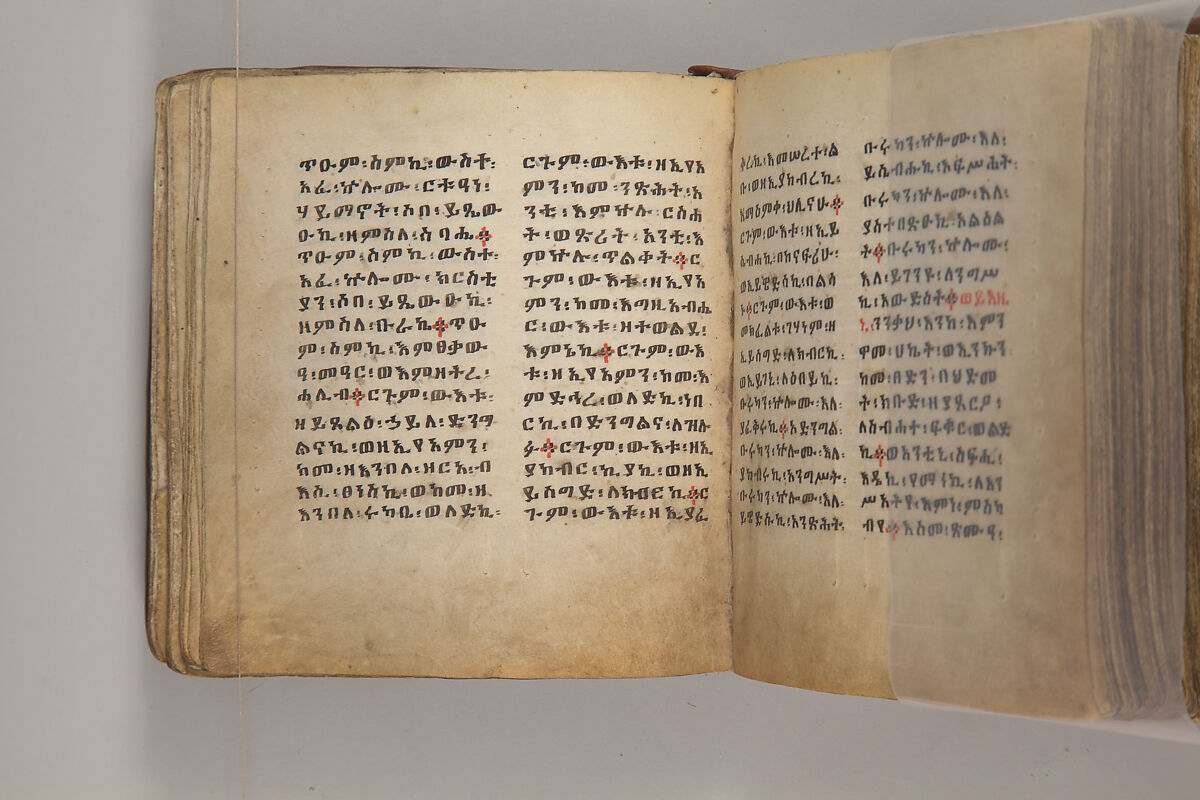 ጥዑም፡ስምኪ፡ውስተ፡
አፈ፡ኵሎሙ፡ርቱዓነ፡
ሃይማኖት፡ሶበ፡ይጼው
ዑኪ፡ዘምስለ፡ስባሔ።
ጥዑም፡ስምኪ፡ውስተ፡
አፈ፡ኵሎሙ፡ክርስቲ
ያን፡ሶበ፡ይጼውዑኪ፡
ዘምስለ፡ቡራኬ።ጥዑ
ም፡ስምኪ፡እምፀቃው
ዓ፡መዓር፡ወእምዘትረ፡
ሐሊብ።ርጉም፡ውእቱ፡
ዘይጼልዕ፡ኃይለ፡ድንግ
ልናኪ፡ወዘኢየአምን፡
ከመ፡ዘእንበለ፡ዘርአ፡ብ
እሲ፡ፀነስኪ፡ወከመ፡ዘ
እንበለ፡ሩካቤ፡ወለድኪ፡
ርጉም፡ውእቱ፡ዘኢየአ
ምን፡ከመ፡ንጽሕት፡አ
ንቲ፡እምኵሉ፡ርስሐ
ት፡ወጽሪት፡አንቲ፡እ
ምኵሉ፡ጥልቀት።ር
ጉም፡ውእቱ፡ዘኢየአ
ምን፡ከመ፡እግዚአብሔ
ር፡ውእቱ፡ዘተወልደ፡
እምኔኪ።ርጉም፡ውእ
ቱ፡ዘኢየአምን፡ከመ፡እ
ምድኅረ፡ወለድኪ፡ነበ
ርኪ፡በድንግልና፡ለዝሉ
ፉ።ርጉም፡ውእቱ፡ዘኢ
ያከብር፡ኪያኪ፡ወዘኢ
ይሰግድ፡ለክብርኪ።ር
ጉም፡ውእቱ፡ዘኢያፈ
ቅረኪ፡እመሠረተ፡ል
ቡ፡ወዘኢያከብረኪ፡
እማዕምቀ፡ህሊናሁ።
ርጉም፡ውእቱ፡ዘኢይ
ሴብሐኪ፡በከናፍሪሁ፡
ወኢይዌድሰኪ፡በልሳ
ኑ።ርጉም፡ውእቱ፡ወ
መክፈልቱ፡ገሃነም፡ዘ
ኢይሰግድ፡ለክብርኪ፡
ወኢይገኒ፡ለዕበይኪ፡
ቡሩካን፡ኵሎሙ፡እለ፡
ያፈቅሩኪ።እድንግል፡
ቡሩካን፡ኵሎሙ፡እለ፡
ያከብሩኪ፡እንግሥት፡
ቡሩካን፡ኵሎሙ፡እለ፡
ይዌድሱኪ፡አንጽሕት፡
ቡሩካን፡ኵሎሙ፡እለ፡
ይሴብሑኪ፡አፍሥሕት፡
ቡሩካን፡ኵሎሙ፡እለ፡
ያስተበፅዑኪ፡አልዕል
ት።ቡሩካን፡ኵሎሙ፡
እለ፡ይገንዩ፡ለንግሥ
ኪ፡አውድስት።ወይእዜ
ኒ፡ንንቃህ፡እንከ፡እምን
ዋመ፡ሀኬት፡ወኢንኩን
ከመ፡በድን፡በህድመ
ት፡ክቡድ፡ዘያጸርዖ፡
ለስብሐተ፡ፍቁር፡ወልድ
ኪ።ወአንቲኒ፡ስፍሒ፡
እዴኪ፡የማነኪ፡ለእን
ሥአትየ፡እምነ፡ምስካ
ብየ።እስመ፡ጽሙዓ፡